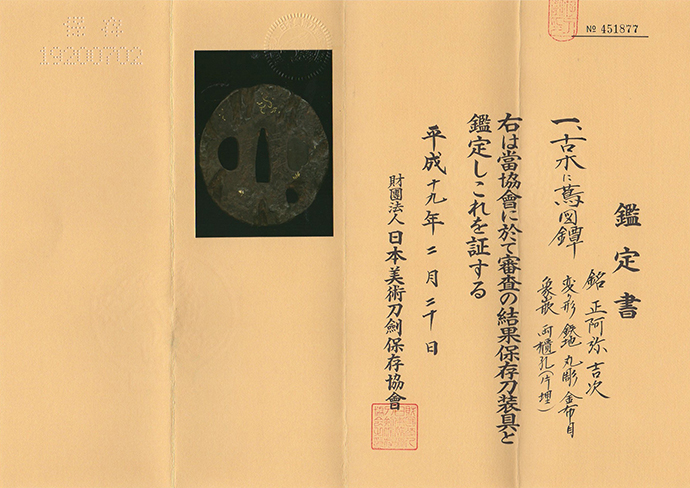 № 451877
鑑定書
一、古木に蔦図鐔
銘 正阿弥吉次
変り形 鉄地 丸彫 金布目
象嵌 両櫃孔(片埋)
右は當協會に於て審査の結果保存刀装具と
鑑定しこれを証する
平成十九年二月二十日
財團法人 日本美術刀劍保存協會
保存
19200702